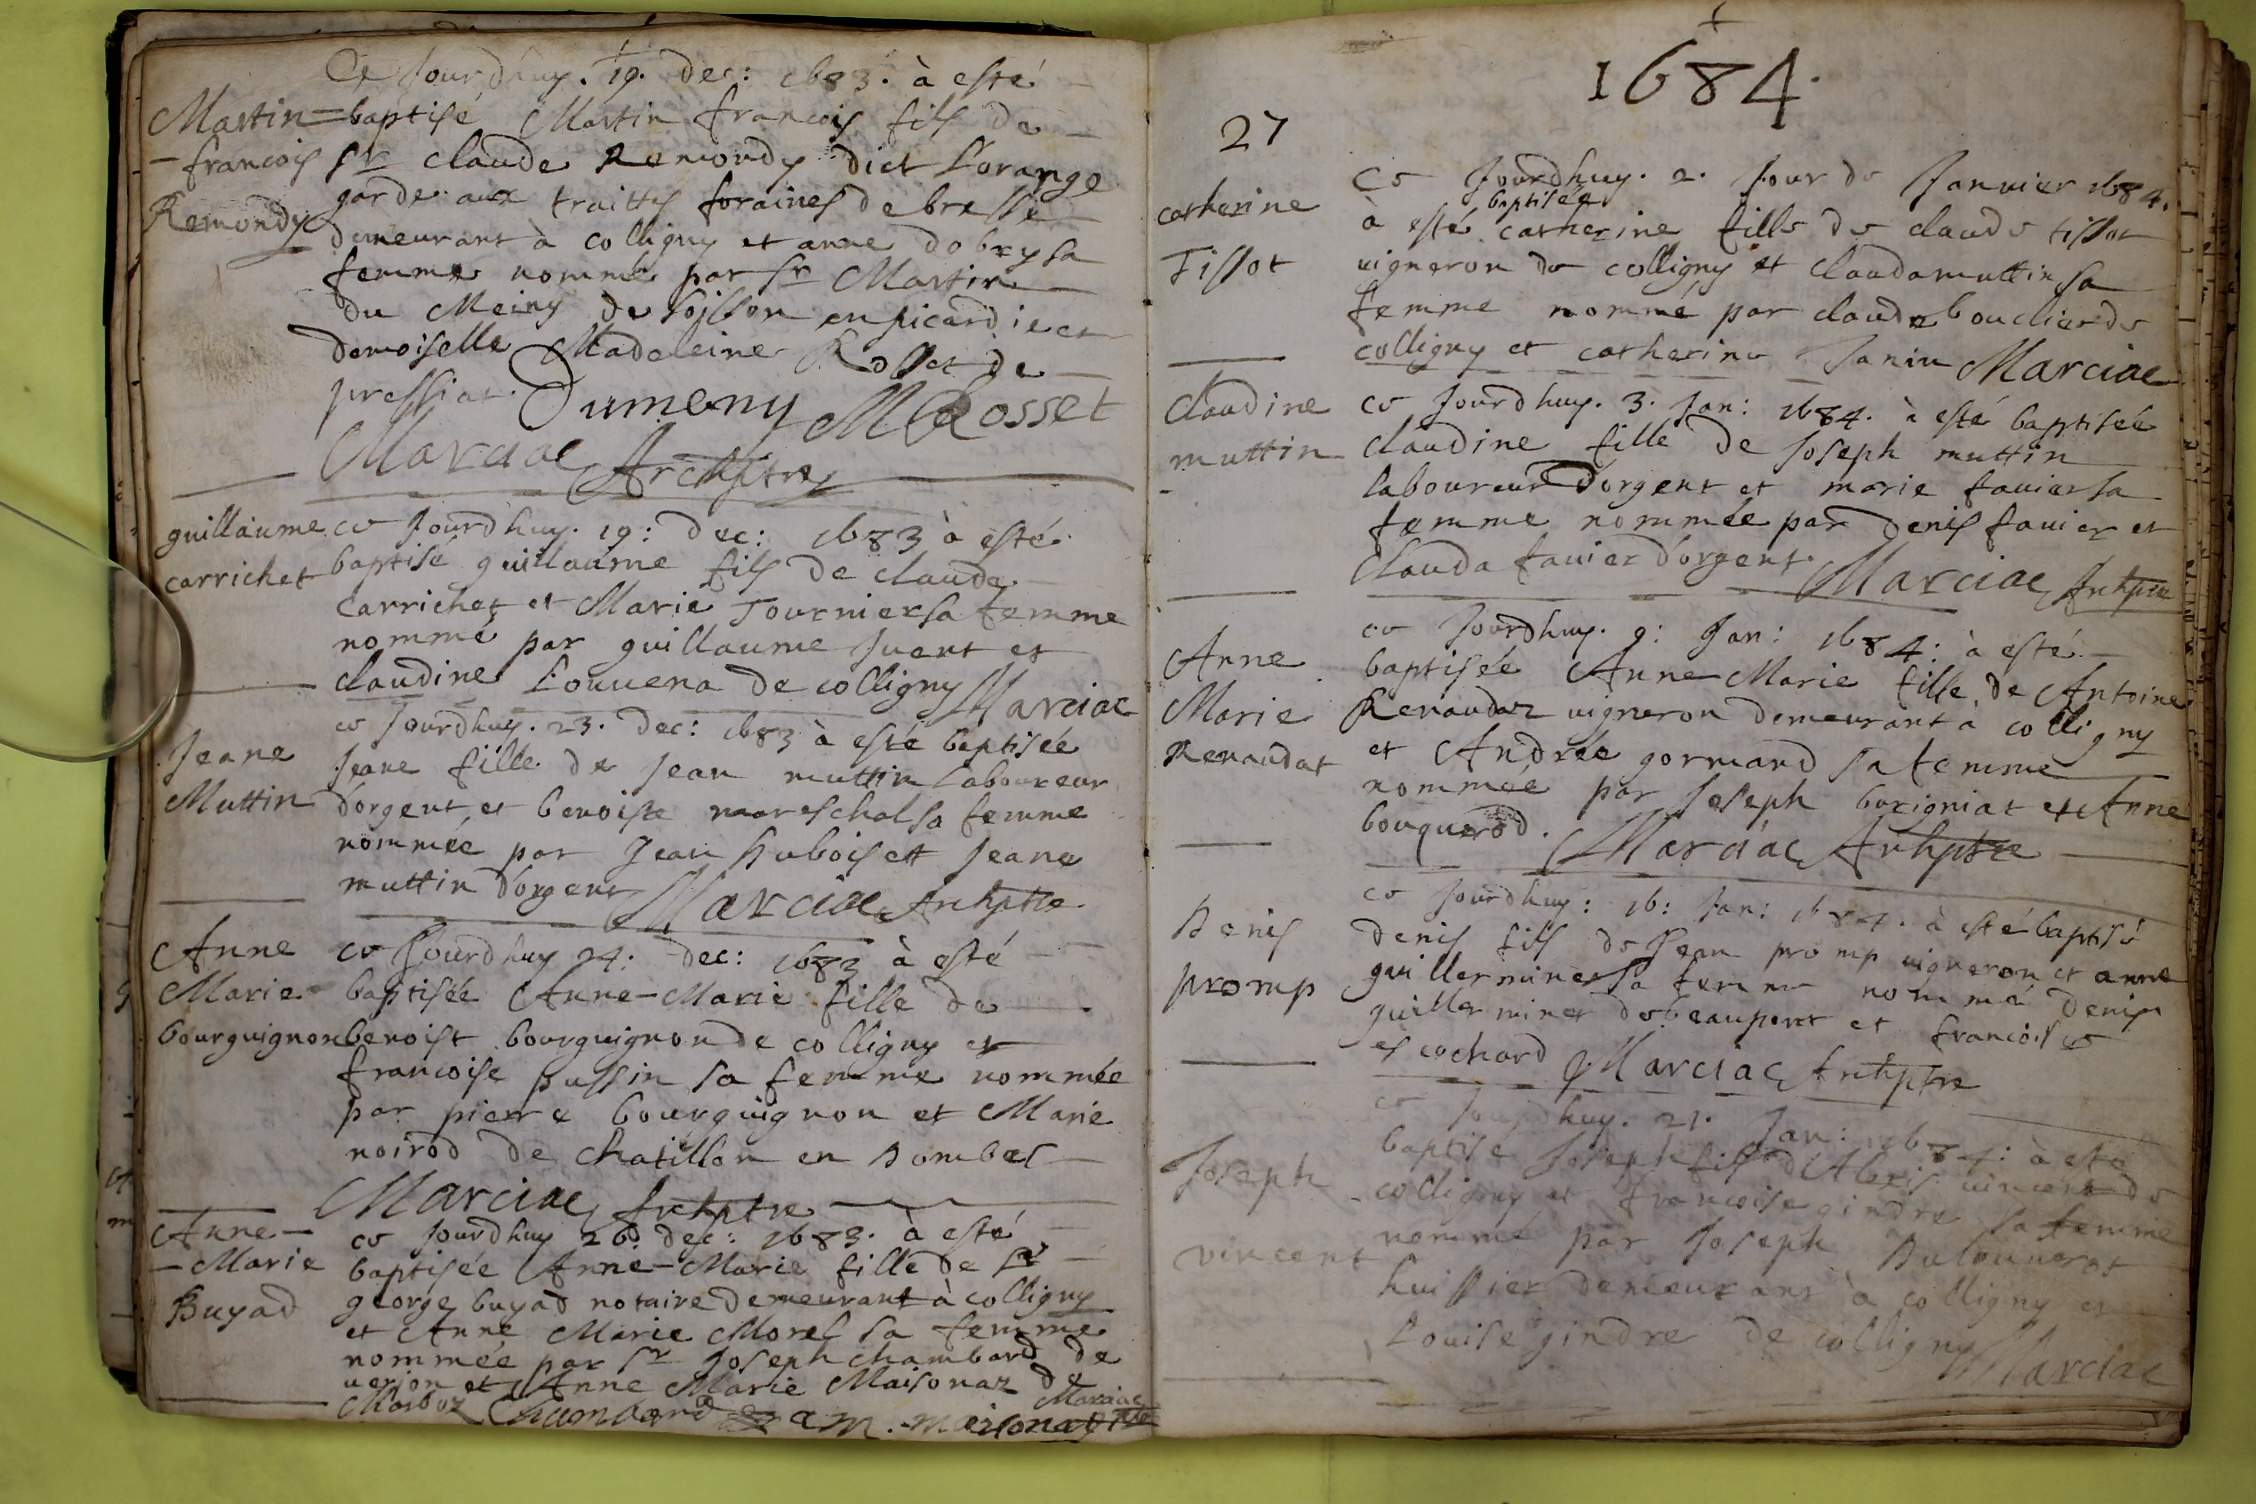 Ce Jourdhuy. 19. dec: 1683. à esté
Martin= baptisé Martin francois fils de
-francois Sr claude Remondy dict L'orange
garde aux traittes foraines de bresse
Remondy demeurant à colligny et anne dobry sa
femme nommé par Sr Martin
du Meiny de soisson en picardie et
demoiselle Madeleine Rosset de
pressiat. Dumeny M Rosset
Marciac Archptre
guillaume ce Jourdhuy. 19: dec: 1683 à esté
carrichet baptisé guillaume fils de claude
carrichet et Marie Tournier sa femme
nommé par guillaume Juent et
claudine Louuena de colligny Marciac
ce Jourdhuy. 23. dec: 1683 à esté baptisée
Jeane Jeane fille de Jean muttin laboureur
Muttin d'orgent et benoiste mareschal sa femme
nommée par Jean hubois et Jeane
muttin d'orgent Marciac Archptre
Anne ce Jourdhuy 24: dec: 1683 à esté
Marie baptisée Anne-Marie fille de
bourguignon benoist bourguignon de colligny et
francoise pussin sa femme nommée
par pierre bourguignon et Marie
noirod de chatillon en Dombes
Marciac Archptre
Anne- ce Jourdhuy 26. dec: 1683. à esté
-Marie baptisée Anne-Marie fille de Sr
Buyad george buyad notaire demeurant à colligny
et Anne Marie Morel sa femme
nommée par Sr Joseph chambard de
uerjon et Anne Marie Maisonat de
Marboz Chambard a m. maisonat Marciac
1684.
27
Ce Jourdhuy. 2. Jour de Januier 1684.
baptisée
catherine à esté catherine fille de claude tissot
Tissot uigneron de colligny et clauda muttin sa
femme nommé par claude bouclier de
colligny et catherine Janin Marciac
Claudine ce Jourdhuy. 3. Jan: 1684. à esté baptisée
muttin claudine fille de Joseph muttin
laboureur d'orgent et marie fauier sa
femme nommée par Denis fauier et
Clauda fauier d'orgent Marciac Archptre
ce Jourdhuy. 9: Jan: 1684: à esté
Anne baptisée Anne-Marie fille de Antoine
Marie Renaudat uigneron demeurant à colligny
Renaudat et Andrée gormand sa femme
nommée par Joseph borigniat et Anne
bouquerod. Marciac Archptre
ce Jourdhuy: 16: Jan: 1684. à esté baptisé
Denis denis fils de Jean promp uigneron et anne
promp guillerminet sa femme nommé Denis
guillerminet de beaupont et francoise
cochard Marciac Archptre
ce Jourdhuy. 21. Jan: 1684: à esté
Joseph baptisé Joseph fils d'Alexis uincent de
colligny et francoise gindre sa femme
vincent nommé par Joseph
huissier demeurant à colligny et
Louise gindre de colligny Marciac